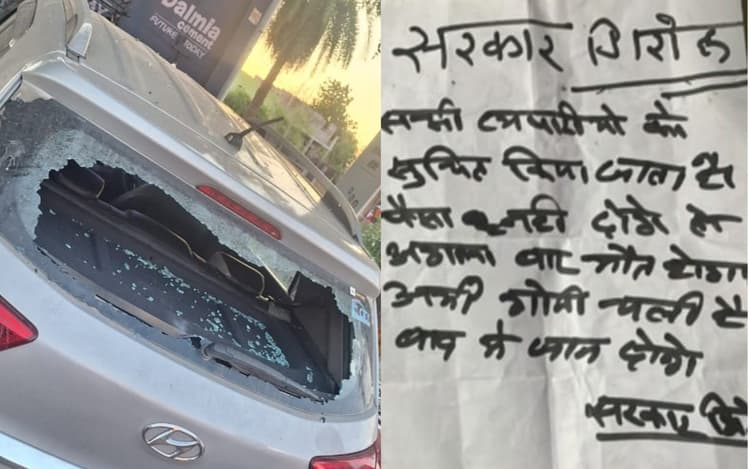 Dalmia
cement
FUTURE TODAY
सरकार गिरोह
सभी व्यपारीयो को
सुचित किया जाता है
पैसा नही दोगे तो
अगला बार मौत होगा
अभी गोली चली है
बाद मे जान दोगे
सरकार